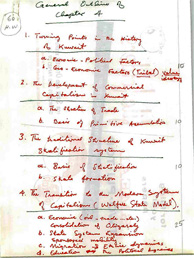 General Outline of
Chapter 4
1. Turning Points in the History
of Kuwait
a. Economic-Political Factors
b. Geo-Economic Factors (Tribal)
10
2. The Development of Commercial
Capitalism in Kuwait
a. The Structure of Trade
b. Basis of Primitive Accumulation
10
3. The Traditional Structure of Kuwait
Stratification System
a. Basis of Stratification
b. State formation
10
4. The Transition to the Modern System
of Capitalism (Welfare State Model)
a. Economic
Consolidation of Oligarchy
b. State System Expansion
c. Migration & Ethnic dynamics
d. Education and the Political dynamics